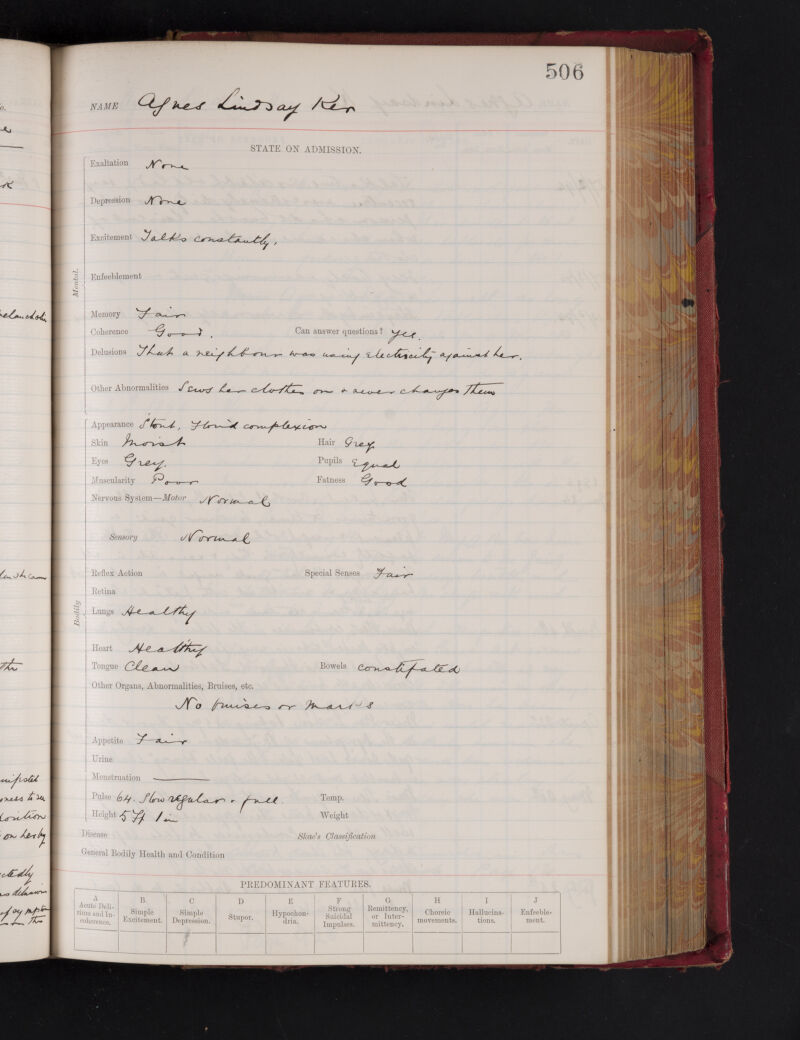 506
NAME Agnes Lindsay Ker
STATE ON ADMISSION.
Mental.
Exaltation None
Depression None
Excitement Talks constantly.
Enfeeblement
Memory Fair
Coherence Good. Can answer questions? Yes.
Delusions That a neighbour was using electricity against her.
Other Abnormalities Sews her clothes on & never changes them
Bodily
Appearance Stout, Florid complexion
Skin Moist Hair Grey
Eyes Grey. Pupils Equal
Muscularity Poor Fatness Good
Nervous System—Motor Normal
Sensory Normal
Reflex Action Special Senses Fair
Retina
Lungs Healthy
Heart Healthy
Tongue Clean Bowels Constipated
Other Organs, Abnormalities, Bruises, etc.
No bruises or marks
Appetite Fair
Urine
Menstruation ———
Pulse 64. Slow regular & full. Temp.
Height 5 ft 1 in Weight
Disease Skae's Classification
General Bodily Health and Condition
PREDOMINANT FEATURES.
A Acute Delirious and Incoherence.
B. Simple Excitement.
C Simple Depression.
D Stupor.
E Hypochondria.
F Strong Suicidal Impulses.
G Remittency, or Intermittency.
H Choreic movements.
I Hallucinations.
J Enfeeblement.